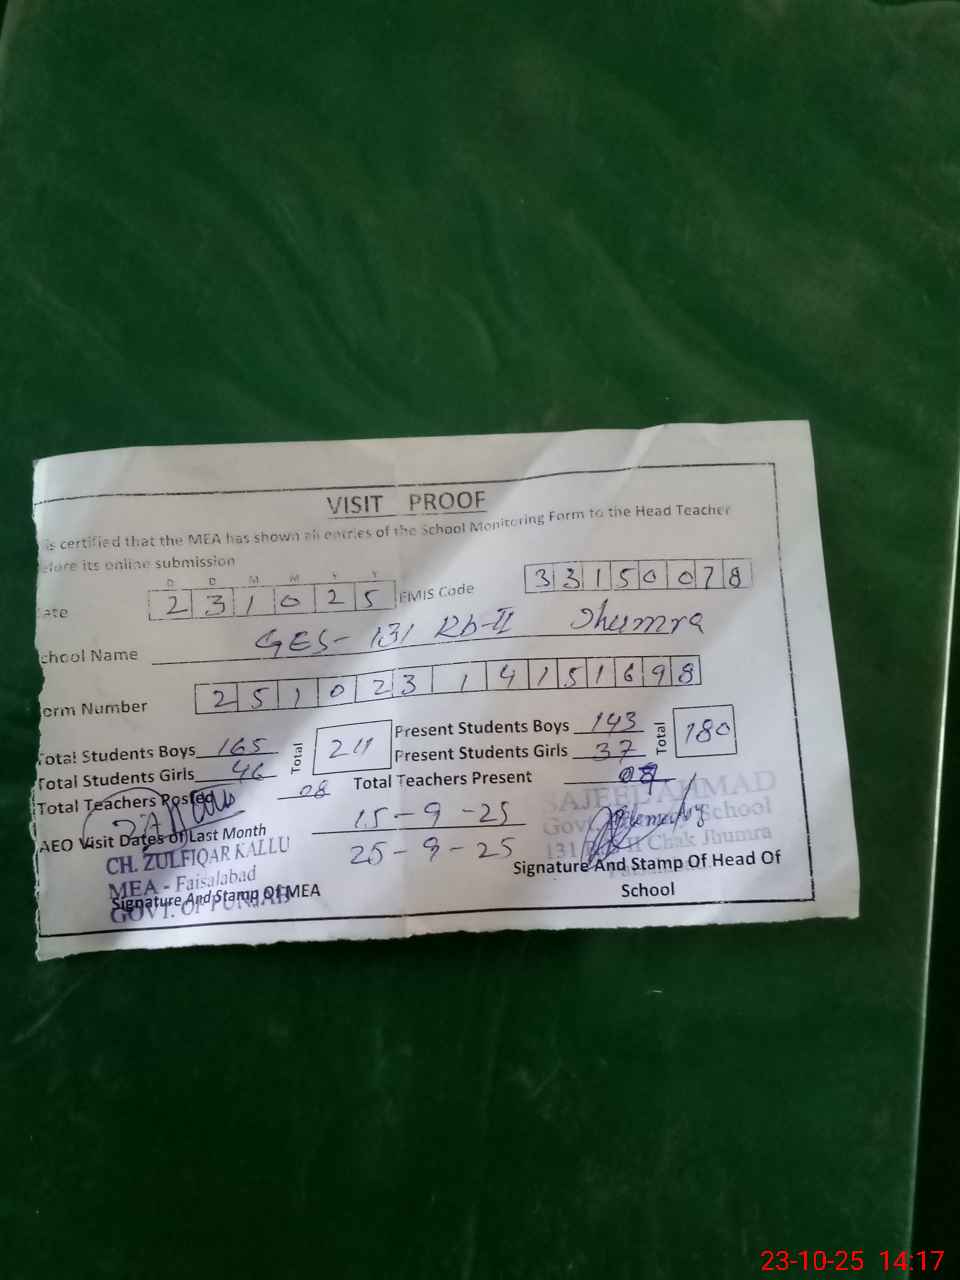 VISIT PROOF
is certified that the MEA has shown all entries of the School Monitoring Form to the Head Teacher
efore its online submission
D D M M Y Y
ate 2 3 1 0 2 5 EMIS Code 3 3 1 5 0 0 7 8
chool Name GES- 131 Rb-II Jhumra
orm Number 2 5 1 0 2 3 1 4 1 5 1 6 9 8
Total Students Boys 165 Total 211 Present Students Boys 143 Total 180
Total Students Girls 46 Present Students Girls 37
Total Teachers Posted 08 Total Teachers Present
AEO Visit Dates of Last Month 15-9-25
25-9-25
CH. ZULFIQAR KALLU
MEA - Faisalabad
GOVT. OF PUNJAB
Signature And Stamp Of MEA
SAJEEL AHMAD
Govt. Elementary School
131 Chak Jhumra
Signature And Stamp Of Head Of
School
23-10-25 14:17